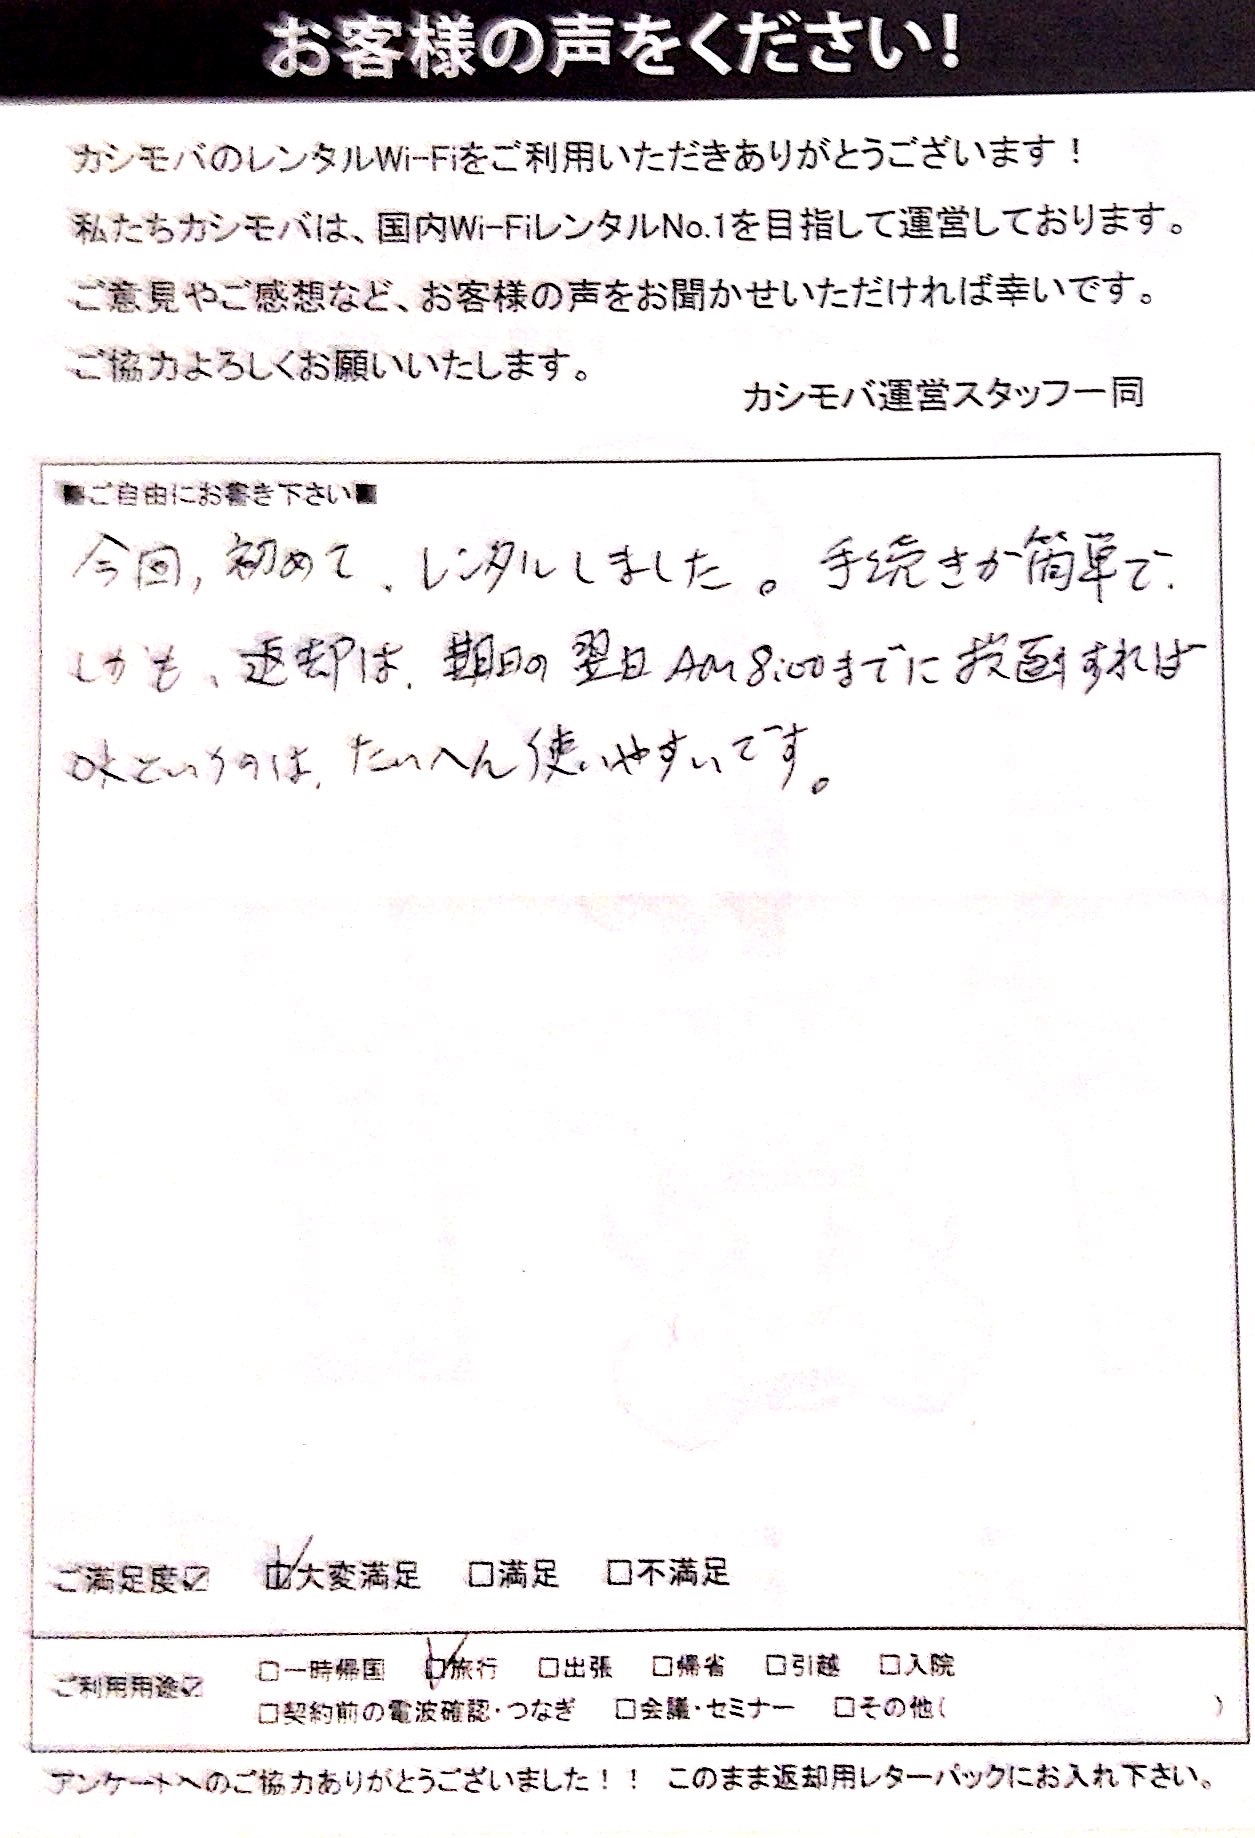 お客様の声をください!
カシモバのレンタルWi-Fiをご利用いただきありがとうございます!
私たちカシモバは、国内Wi-FiレンタルNo.1を目指して運営しております。
ご意見やご感想など、お客様の声をお聞かせいただければ幸いです。
ご協力よろしくお願いいたします。
カシモバ運営スタッフ一同
■ご自由にお書き下さい■
今回、初めて、レンタルしました。手続きが簡単で、
しかも、返却は、期日の翌日AM8:00までに投函すれば
OKというのは、たいへん使いやすいです。
ご満足度☑ ☑大変満足 □満足 □不満足
ご利用用途☑ □一時帰国 ☑旅行 □出張 □帰省 □引越 □入院
□契約前の電波確認・つなぎ □会議・セミナー □その他( )
アンケートへのご協力ありがとうございました!! このまま返却用レターパックにお入れ下さい。